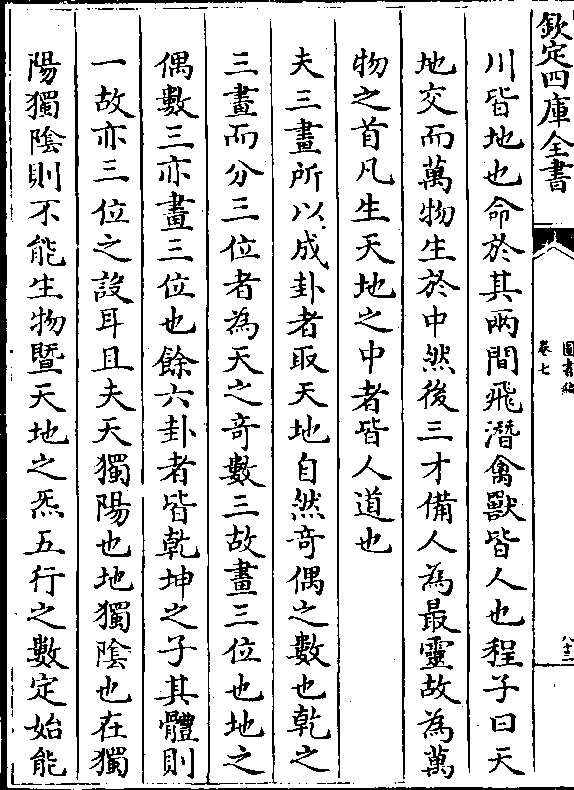 欽定四庫全書
圖書編
卷七
八十三
川皆地也命於其兩間飛潛禽獸皆人也程子曰天
地交而萬物生於中然後三才備人為最靈故為萬
物之首凡生天地之中者皆人道也
夫三畫所以成卦者取天地自然竒偶之數也乾之
三畫而分三位者為天之竒數三故畫三位也地之
偶數三亦畫三位也餘六卦者皆乾坤之子其體則
一故亦三位之設耳且夫天獨陽也地獨陰也在獨
陽獨陰則不能生物暨天地之炁五行之數定始能